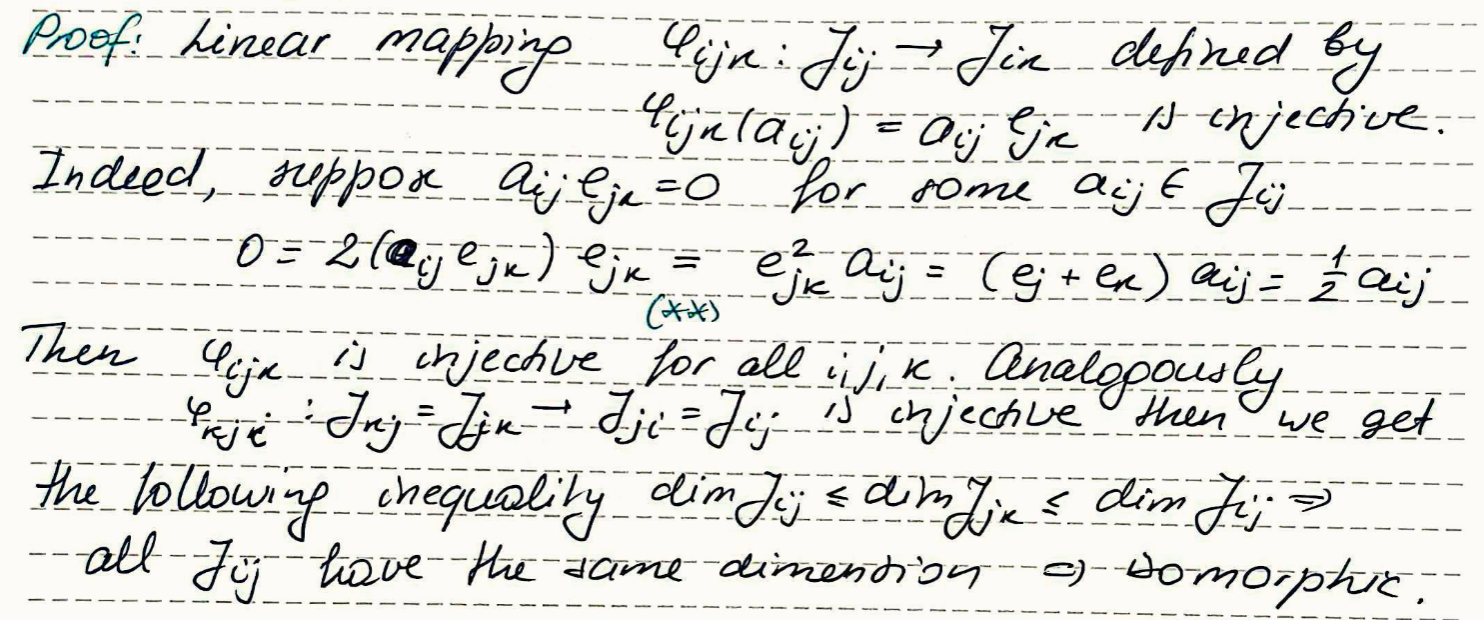 Proof: Linear mapping φ_{ijk} : J_{ij} → J_{ik} defined by
φ_{ijk}(a_{ij}) = a_{ij} e_{jk} is injective.
Indeed, suppose a_{ij} e_{jk} = 0 for some a_{ij} ∈ J_{ij}
0 = 2(a_{ij} e_{jk}) e_{jk} = e_{jk}^2 a_{ij} = (e_j + e_k) a_{ij} = 1/2 a_{ij}
(**)
Then φ_{ijk} is injective for all i, j, k. Analogously
φ_{kji} : J_{kj} = J_{jk} → J_{ji} = J_{ij} is injective then we get
the following inequality dim J_{ij} ≤ dim J_{jk} ≤ dim J_{ij} ⇒
all J_{ij} have the same dimention ⇒ isomorphic.